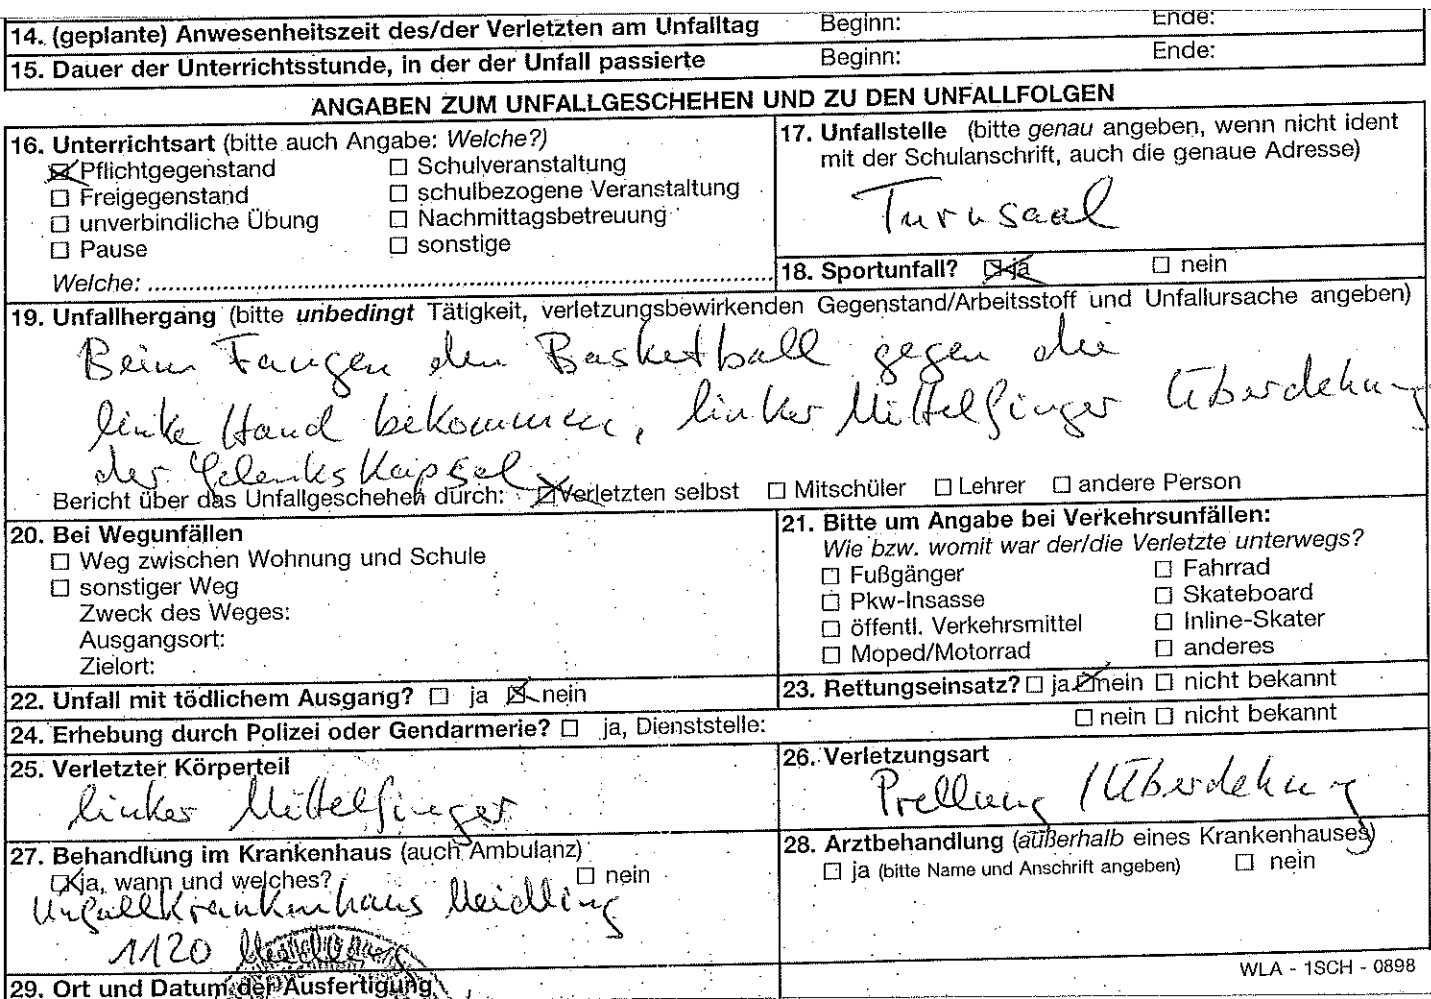 14. (geplante) Anwesenheitszeit des/der Verletzten am Unfalltag Beginn: Ende:
15. Dauer der Unterrichtsstunde, in der der Unfall passierte Beginn: Ende:
ANGABEN ZUM UNFALLGESCHEHEN UND ZU DEN UNFALLFOLGEN
16. Unterrichtsart (bitte auch Angabe: Welche?)
☒ Pflichtgegenstand ☐ Schulveranstaltung
☐ Freigegenstand ☐ schulbezogene Veranstaltung
☐ unverbindliche Übung ☐ Nachmittagsbetreuung
☐ Pause ☐ sonstige
Welche: ........................................................................
17. Unfallstelle (bitte genau angeben, wenn nicht ident
mit der Schulanschrift, auch die genaue Adresse)
Turnsaal
18. Sportunfall? ☒ ja ☐ nein
19. Unfallhergang (bitte unbedingt Tätigkeit, verletzungsbewirkenden Gegenstand/Arbeitsstoff und Unfallursache angeben)
Beim Fangen den Basketball gegen die
linke Hand bekommen, linker Mittelfinger Überdehnung
der Gelenkskapsel
Bericht über das Unfallgeschehen durch: ☒ Verletzten selbst ☐ Mitschüler ☐ Lehrer ☐ andere Person
20. Bei Wegunfällen
☐ Weg zwischen Wohnung und Schule
☐ sonstiger Weg
Zweck des Weges:
Ausgangsort:
Zielort:
21. Bitte um Angabe bei Verkehrsunfällen:
Wie bzw. womit war der/die Verletzte unterwegs?
☐ Fußgänger ☐ Fahrrad
☐ Pkw-Insasse ☐ Skateboard
☐ öffentl. Verkehrsmittel ☐ Inline-Skater
☐ Moped/Motorrad ☐ anderes
22. Unfall mit tödlichem Ausgang? ☐ ja ☒ nein
23. Rettungseinsatz? ☐ ja ☒ nein ☐ nicht bekannt
24. Erhebung durch Polizei oder Gendarmerie? ☐ ja, Dienststelle: ☐ nein ☐ nicht bekannt
25. Verletzter Körperteil
linker Mittelfinger
26. Verletzungsart
Prellung / Überdehnung
27. Behandlung im Krankenhaus (auch Ambulanz)
☒ ja, wann und welches? ☐ nein
Unfallkrankenhaus Meidling
1120
28. Arztbehandlung (außerhalb eines Krankenhauses)
☐ ja (bitte Name und Anschrift angeben) ☐ nein
WLA - 1SCH - 0898
29. Ort und Datum der Ausfertigung